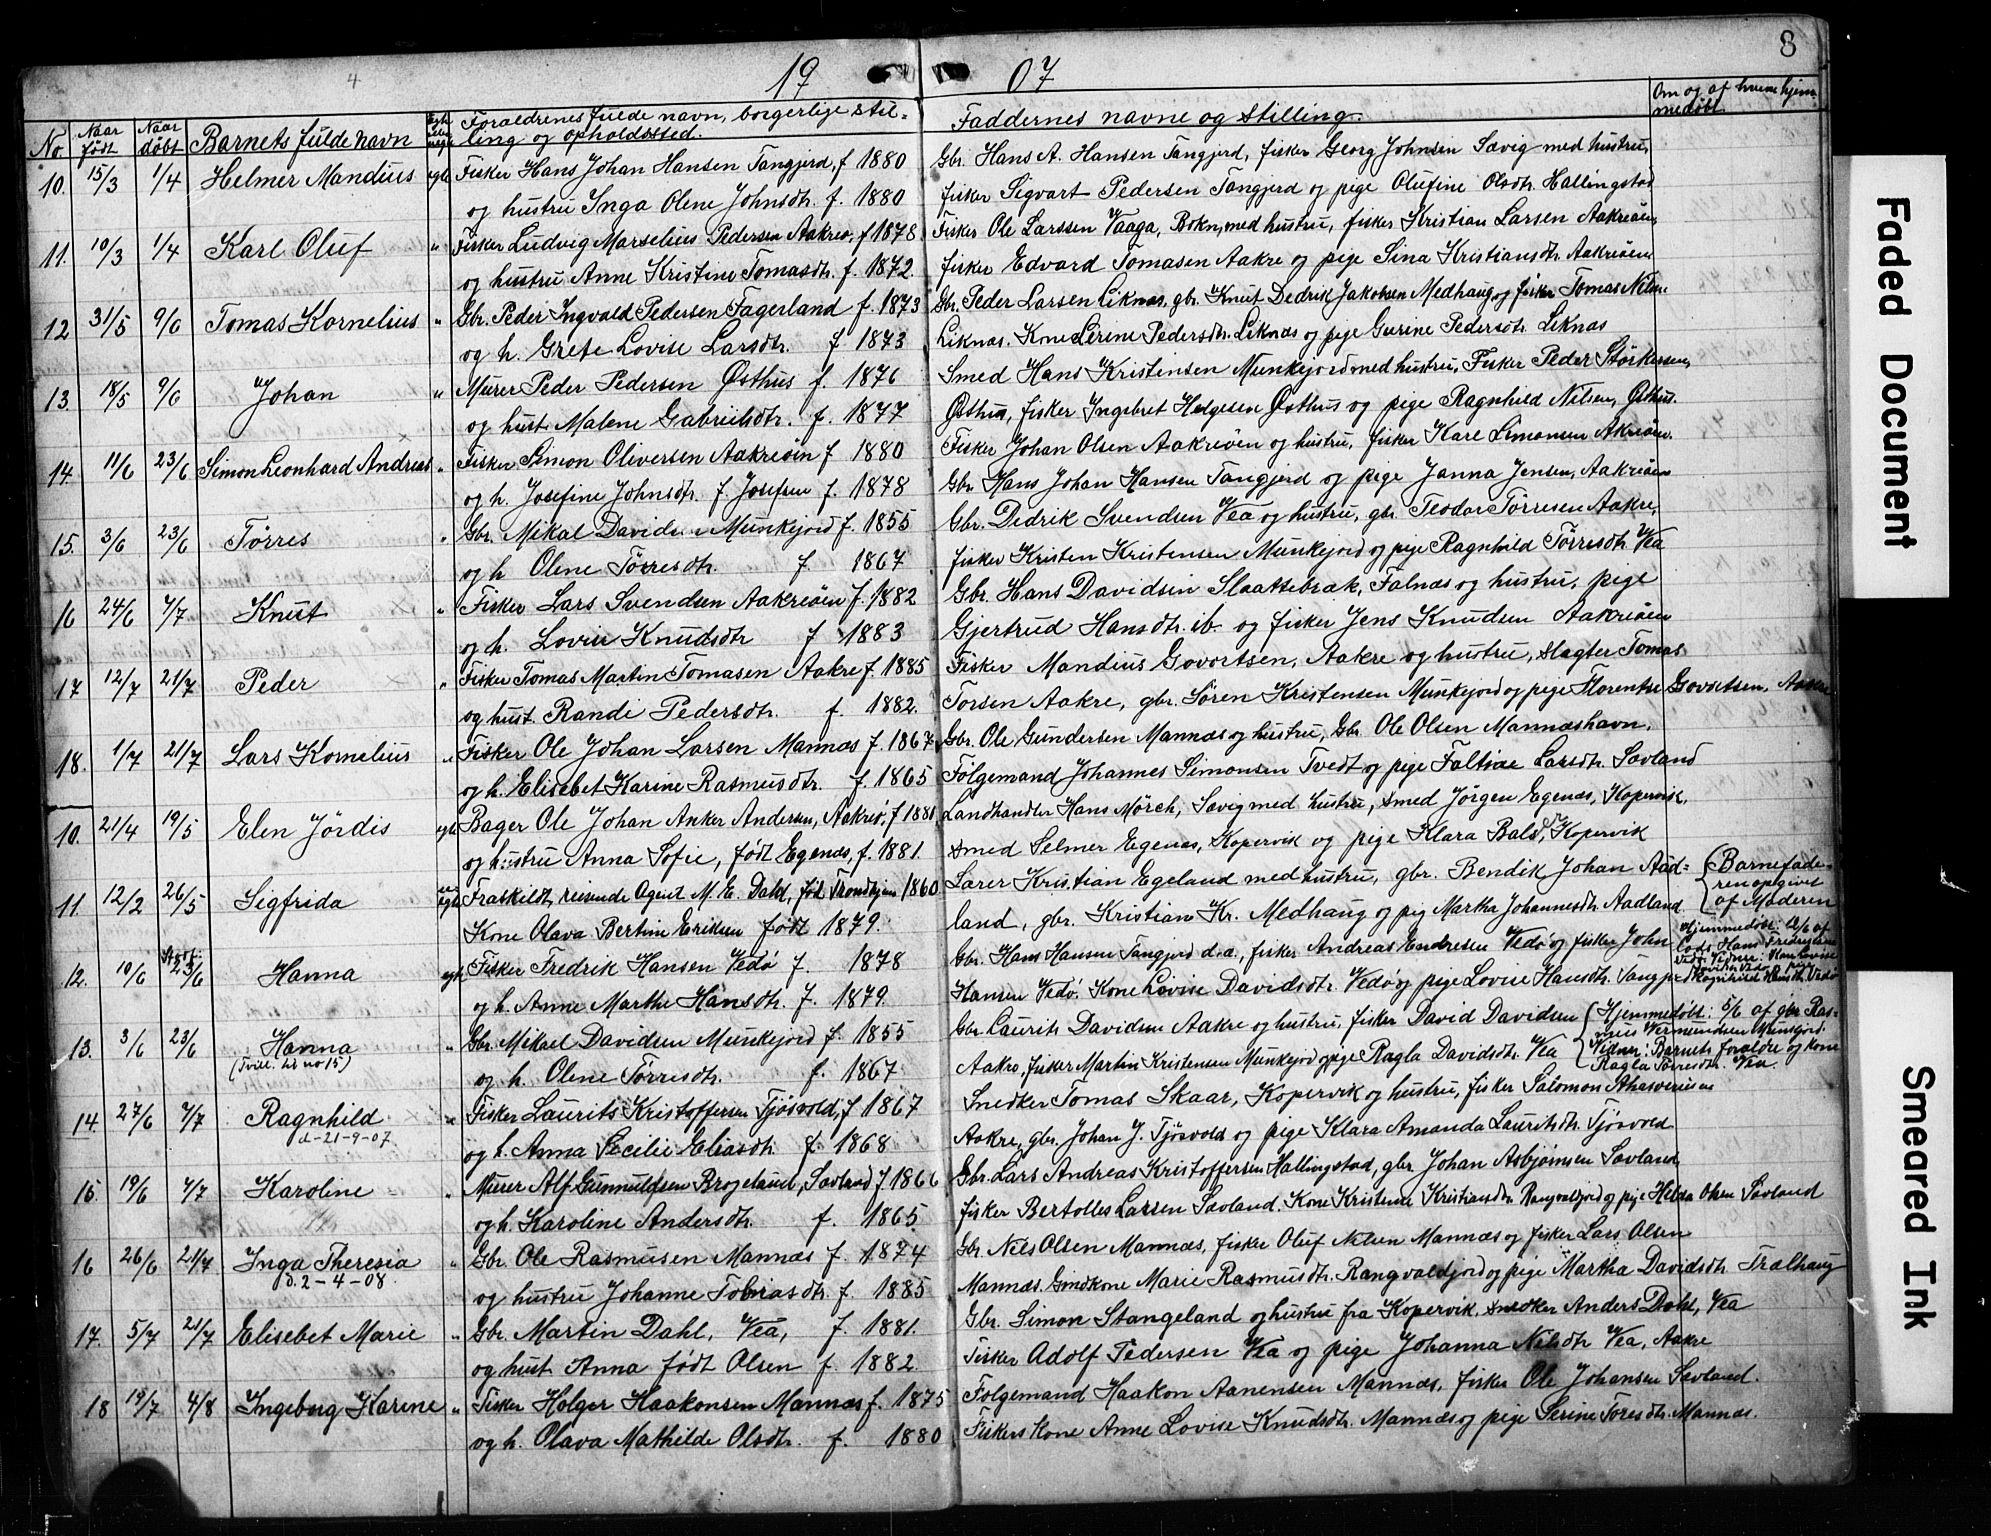 4
19 07
8
No. Naar født Naar døbt Barnets fulde navn Foraldrenes fulde navn, borgerlige stilling og opholdssted. Faddernes navne og stilling. Om og af hvem hjemmedøbt.
10. 15/3 1/4 Helmer Mandius egte Fisker Hans Johan Hansen Tangjerd, f 1880 Gbr. Hans A. Hansen Tangjerd, fisker Georg Johnsen Sævig med hustru,
og hustru Inga Olene Johnsdtr. f. 1880 fisker Sigvart Pedersen Tangjerd og pige Olufine Olsdtr. Hallingstad
11. 10/3 1/4 Karl Oluf " Fisker Ludvig Marselius Pedersen Aakreø, f 1878 Fisker Ole Larssen Vaaga, Bokn, med hustru, fisker Kristian Larsen Aakreøen,
og hustru Anne Kristine Tomasdtr. f. 1872. fisker Edvard Tomasen Aakre og pige Sina Kristiansdtr. Aakreøen
12 31/5 9/6 Tomas Kornelius " Gbr. Peder Ingvald Pedersen Fagerland f. 1873 Gbr. Peder Larsen Liknæs, gbr. Knut Dedrik Jakobsen Medhaug og fisker Tomas Nilsen
og h. Grete Lovise Larsdtr. f 1873 Liknæs. Kone Lerine Pedersdtr. Liknæs og pige Gurine Pedersdtr. Liknæs
13. 18/5 9/6 Johan " Murer Peder Pedersen Østhus f. 1876 Smed Hans Kristensen Munkejord med hustru, Fisker Peder Størkersen,
og hust. Malene Gabrielsdtr. f. 1877 Østhus, fisker Ingebret Helgesen Østhus og pige Ragnhild Nilsen, Østhus.
14. 11/6 23/6 Simon Leonhard Andreas " Fisker Simon Oliversen Aakreøen f 1880 Fisker Johan Olsen Aakreøen og hustru, fisker Karl Simonsen Akreøen.
og h. Josefine Johnsdtr. f Josefsen f. 1878 Gbr. Hans Johan Hansen Tangjerd og pige Janna Jensen, Aakreøen
15. 3/6 23/6 Tørres " Gbr. Mikal Davidsen Munkejord f. 1855 Gbr. Dedrik Svendsen Vea og hustru, gbr. Teodor Tørresen Aakre,
og h Olene Tørresdtr. f. 1867 fisker Kristen Kristensen Munkejord og pige Ragnhild Tørresdtr. Vea
16 24/6 7/7 Knut " Fisker Lars Svendsen Aakreøen f. 1882 Gbr. Hans Davidsen Slaattebrak, Falnæs og hustru, pige
og h. Lovise Knudsdtr f 1883 Gjertrud Hansdtr. ib. og fisker Jens Knudsen Aakreøen
17 12/7 21/7 Peder " Fisker Tomas Martin Tomasen Aakre f. 1885 Fisker Mandius Govertsen, Aakre og hustru, slagter Tomas
og hust. Randi Pedersdtr. f. 1882. Torsen Aakre, gbr. Søren Kristensen Munkejord og pige Florentse Govertsen, Aakre
18. 1/7 21/7 Lars Kornelius " Fisker Ole Johan Larsen Mannæs f. 1867 Gbr. Ole Gundersen Mannæs og hustru, Gbr. Ole Olsen Mannæshavn,
og h. Elisebet Karine Rasmusdtr. f. 1865 Følgemand Johannes Simonsen Tvedt og pige Faltine Larsdtr. Søvland
10. 21/4 19/5 Elen Jørdis egte Bager Ole Johan Anker Andersen, Aakreø, f 1881 Landhandler Hans Mørch, Sævig med hustru, smed Jörgen Egenæs, Kopervik,
og hustru Anna Sofie, født Egenæs, f. 1881. smed Selmer Egenæs, Kopervik og pige Klara Bals, Kopervik
11. 12/2 26/5 Sigfrida uegte Fraskildt, reisende Agent M. E. Dahl, fød Trondhjem 1860 Lærer Kristian Egeland med hustru, gbr. Bendik Johan Aad- Barnefade-
Kone Olava Bertine Eriksen født 1879. land, gbr. Kristian Kr. Medhaug og pig Martha Johannesdtr. Aadland ren opgivet af Moderen
12. 10/6 23/6 Hanna egte Fisker Fredrik Hansen Vedø f. 1878 Gbr. Hans Hansen Tangjerd d.æ., fisker Andreas Endresen Vedø og fisker John Hjemmedøbt
og h. Anne Marthe Hansdtr. f. 1879. Hansen Vedø, Kone Lovise Davidsdtr. Vedø og pige Lovise Hansdtr.
13. 3/6 23/6 Hanna " Gbr. Mikael Davidsen Munkejord f. 1855 Gbr. Laurits Davidsen Aakre og hustru, fisker David Davidsen Hjemmedøbt: 5/6 af gbr Ras-
(Tvill. til no 15) og h. Olene Tørresdtr. f. 1867 Aakre, fisker Martin Kristensen Munkejord og pige Ragla Davidsdtr. Vea mus Vermundsen Munkejord. Vidner: Barnets foraldre og kone Ragla Tørresdtr. Vea.
14. 27/6 7/7 Ragnhild " Fisker Laurits Kristoffersen Tjøsvold, f 1867 Snedker Tomas Skaar, Kopervik og hustru, fisker Salomon Ahasverusen
d-21-9-07 og h. Anna Cecilie Eliasdtr. f. 1868 Aakre, gbr. Johan J. Tjøsvold og pige Klara Amanda Lauritsdtr. Tjøsvold
15. 19/6 7/7 Karoline " Murer Alf Gunnuldsen Brogeland, Søvland f 1866 Gbr. Lars Andreas Kristoffersen Hallingstad, gbr Johan Asbjørnsen Søvland,
og h. Karoline Andersdtr. f. 1865 fisker Bertolles Larsen Søvland. Kone Kristene Kristiansdtr Rangvaldjord og pige Helda Olsen Søvland
16 26/6 21/7 Inga Theresia " Gbr. Ole Rasmusen Mannæs f. 1874 Gbr. Nels Olsen Mannæs, fisker Oluf Nelsen Mannæs og fisker Lars Olsen
D. 2-4-08. og hustru Johanne Tobiasdtr. f. 1885 Mannæs. Gmdkone Marie Rasmusdtr. Rangvaldjord og pige Martha Davidsdtr Trælhaug
17. 5/7 21/7 Elisebet Marie " Gbr. Martin Dahl, Vea, f. 1881. Gbr. Simon Stangeland og hustru fra Kopervik, snedker Anders Dahl, Vea
og hust Anna født Olsen f. 1882. Fisker Adolf Pedersen Vea og pige Johanna Nelsdtr Vea, Aakre
18 19/7 4/8 Ingeborg Karine " Fisker Holger Haakonsen Mannæs f. 1875 Følgemand Haakon Aanensen Mannæs, fisker Ole Johansen Søvland.
og h. Olava Mathilde Olsdtr. f. 1880 Fiskers Kone Anne Lovise Knudsdtr. Mannæs og pige Serine Toresdtr. Mannæs.
Faded Document
Smeared Ink